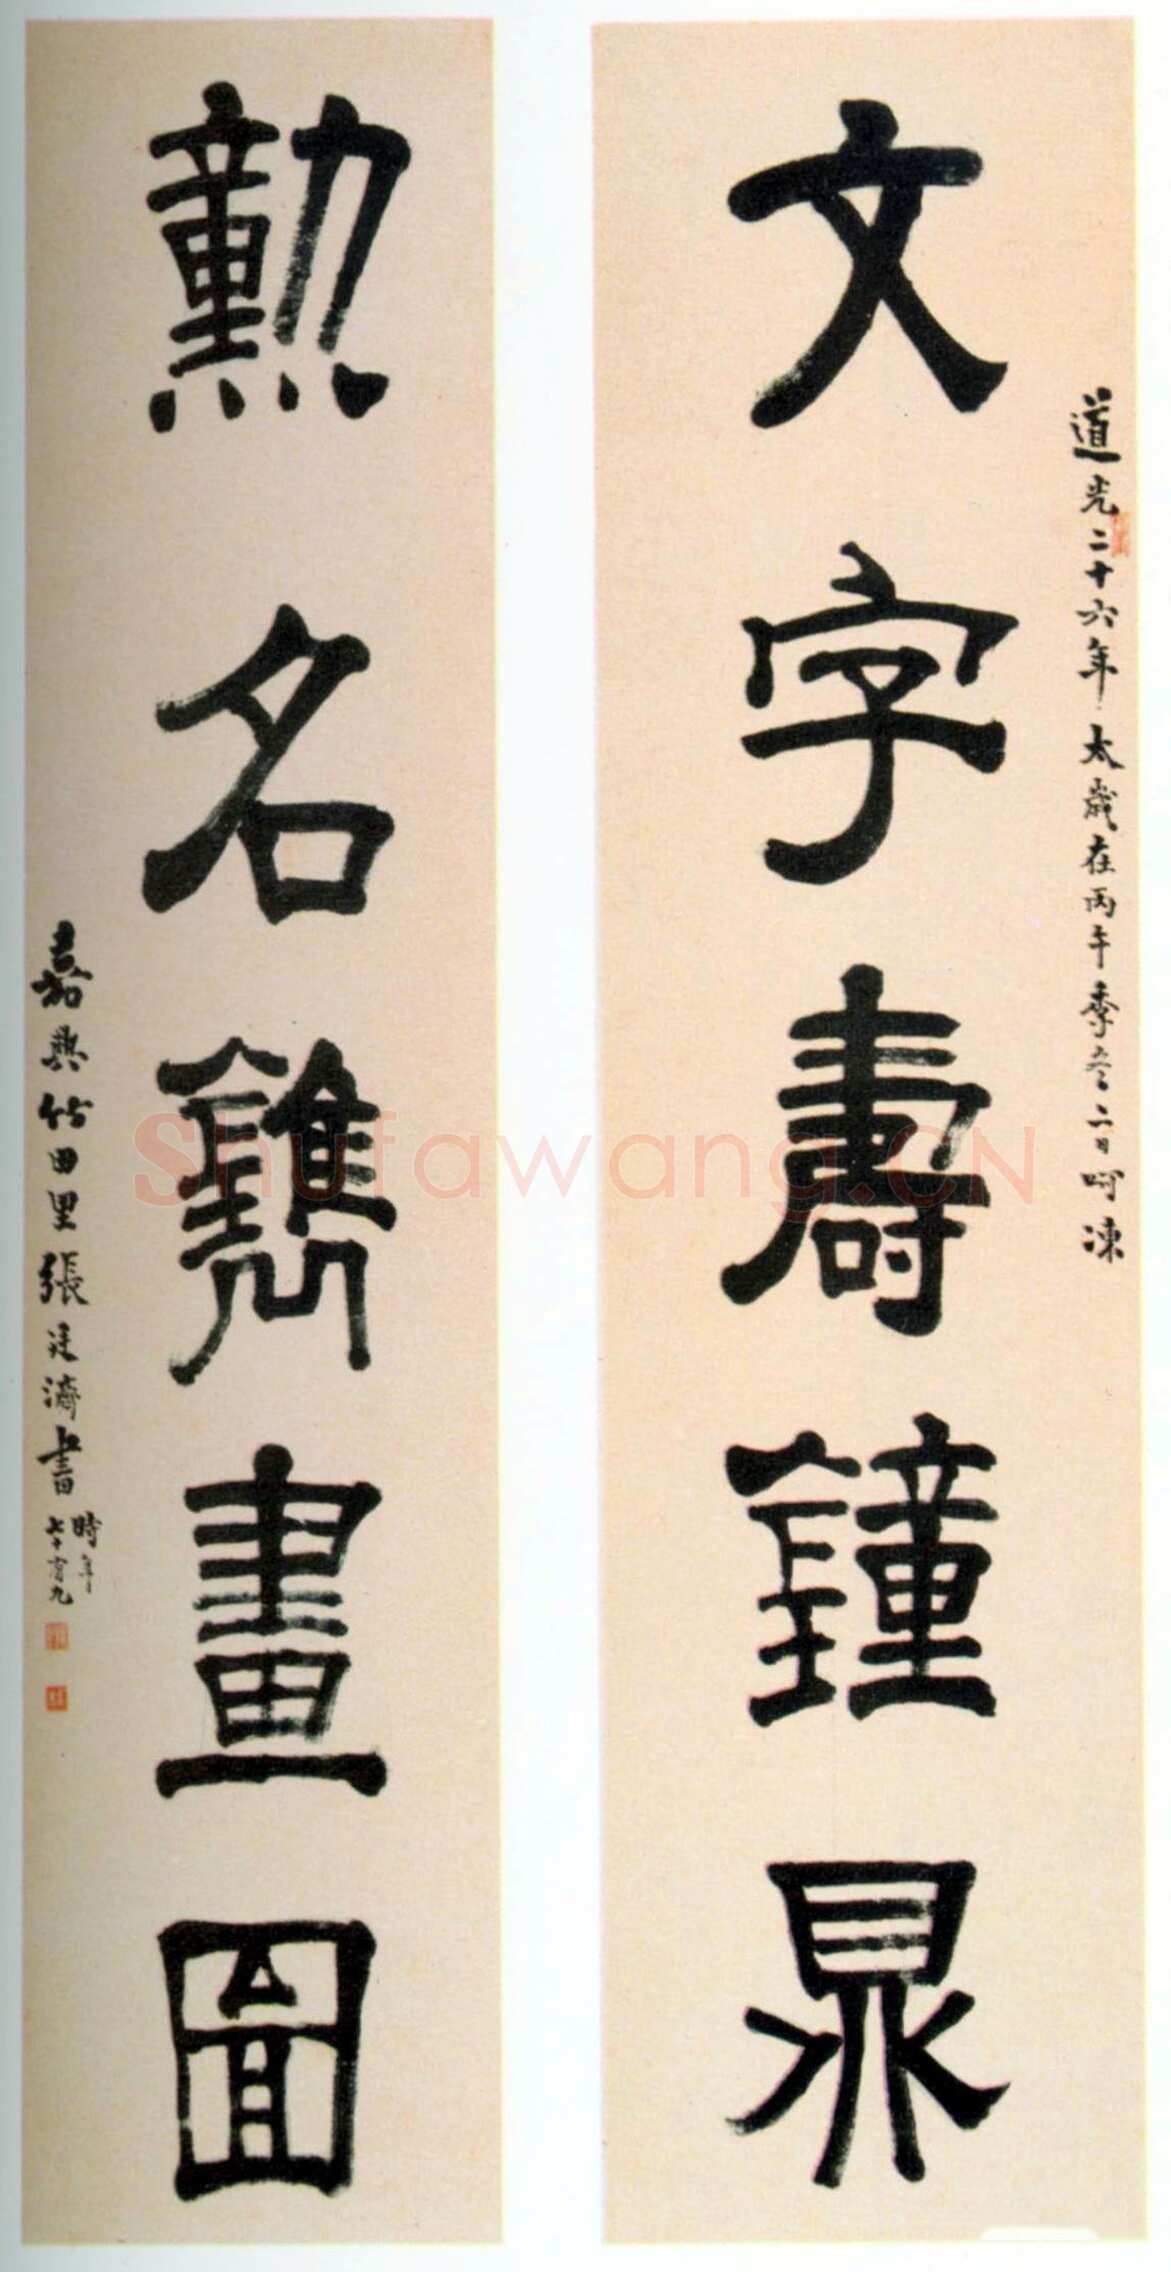 道光二十六年太歲在丙午季冬二日呵凍
文字壽鐘鼎
勳名鐫畫圖
嘉興竹田里張廷濟書
時年
七十有九
Shufawang.CN